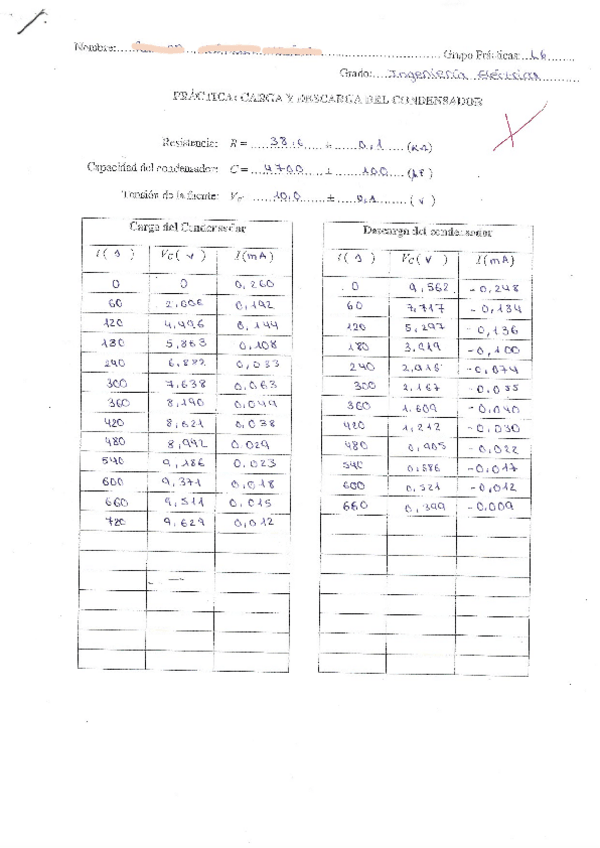 Nombre:
Grupo Prácticas: L6
Grado: Ingeniería Eléctrica
PRÁCTICA: CARGA Y DESCARGA DEL CONDENSADOR
Resistencia: R = 38,6 ± 0,1 (kΩ)
Capacidad del condensador: C = 4700 ± 100 (μF)
Tensión de la fuente: 10,0 ± 0,1 (V)
Carga del Condensador
t( s ) Vc( v ) I(mA)
0 0 0,260
60 0,192
120 4,496 0,144
180 5,863 0,108
240
300 7,638 0,063
360 8,190 0,049
420 8,621 0,038
480 8,992 0.029
540 9,186 0.023
600 9,371 0,018
660 9,511 0,015
720 9.629 0,012
Descarga del condensador
t( s ) Vc( v ) I(mA)
0 9,562 -0,248
60 7,717
120 5,297 -0,136
180 -0,100
240 -0,074
300 2,167 -0.055
360 1.609 -0,040
420 1,212 -0,030
480 -0,022
540 -0,017
600 0,521 -0,012
660 0,399 -0,009